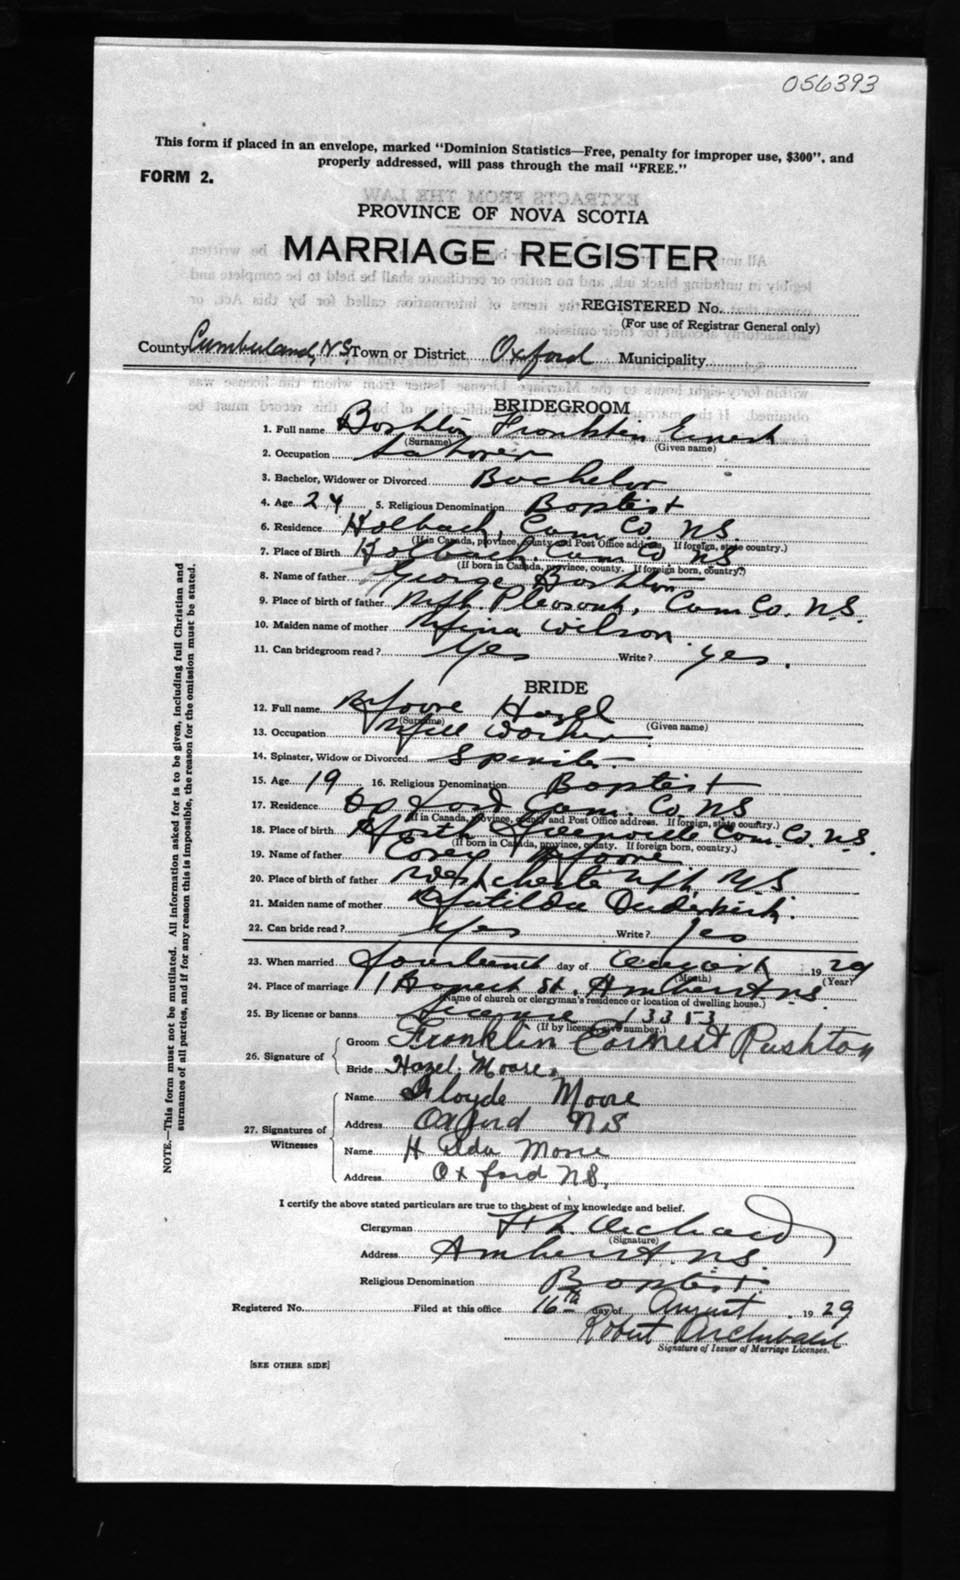 056393
This form if placed in an envelope, marked "Dominion Statistics—Free, penalty for improper use, $300", and
properly addressed, will pass through the mail "FREE."
FORM 2.
PROVINCE OF NOVA SCOTIA
MARRIAGE REGISTER
REGISTERED No.
(For use of Registrar General only)
County Cumberland, N.S. Town or District Oxford Municipality
BRIDEGROOM
1. Full name Franklin Ernest
(Surname) (Given name)
2. Occupation
3. Bachelor, Widower or Divorced Bachelor
4. Age 24 5. Religious Denomination Baptist
6. Residence Cum. Co. N.S.
(If in Canada, province, county and Post Office address. If foreign, state country.)
7. Place of Birth Cum Co NS
(If born in Canada, province, county. If foreign born, country?)
8. Name of father George
9. Place of birth of father Pleasant, Cum Co. N.S.
10. Maiden name of mother Wilson
11. Can bridegroom read? Yes Write? yes.
BRIDE
12. Full name Moore Hazel
(Surname) (Given name)
13. Occupation Mill Worker
14. Spinster, Widow or Divorced Spinster
15. Age 19 16. Religious Denomination Baptist
17. Residence Oxford Cum. Co NS
(If in Canada, province, county and Post Office address. If foreign, state country.)
18. Place of birth North Greenville Cum. Co. N.S.
(If born in Canada, province, county. If foreign born, country.)
19. Name of father Moore
20. Place of birth of father Westchester Mt. N.S
21. Maiden name of mother Matilda
22. Can bride read? Yes Write? Yes
23. When married Fourteenth day of August 1929
(Month) (Year?
24. Place of marriage St. Amherst N.S
(Name of church or clergyman's residence or location of dwelling house.)
25. By license or banns License 13353
(If by license, give number.)
26. Signature of
Groom Franklin Earnest Rushton
Bride Hazel. Moore.
27. Signatures of Witnesses
Name Moore
Address Oxford NS
Name Hilda Moore
Address Oxford N.S.
I certify the above stated particulars are true to the best of my knowledge and belief.
Clergyman
(Signature)
Address Amherst. N.S.
Religious Denomination Baptist.
Registered No. Filed at this office 16th day of August 1929
Robert Archibald
Signature of Issuer of Marriage Licenses.
[SEE OTHER SIDE]
NOTE.—This form must not be mutilated. All information asked for is to be given, including full Christian and
surnames of all parties, and if for any reason this is impossible, the reason for the omission must be stated.